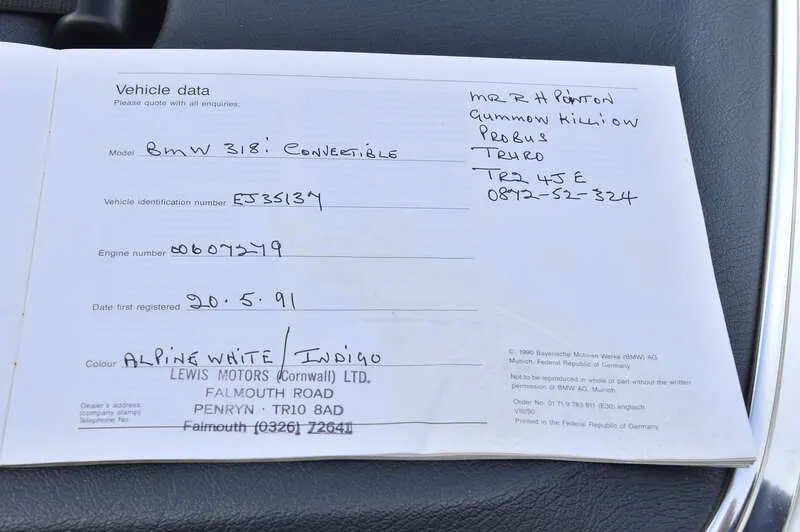 Vehicle data
Please quote with all enquiries.
Model BMW 318i CONVERTIBLE
Vehicle identification number EJ35137
Engine number 00607279
Date first registered 20.5.91
Colour ALPINE WHITE / INDIGO
Dealer's address
(company stamp)
Telephone No.
LEWIS MOTORS (Cornwall) LTD.
FALMOUTH ROAD
PENRYN · TR10 8AD
Falmouth (0326) 72641
MR R H PONTON
GUMMOW KILLIOW
PROBUS
TRURO
TR2 4JE
0872-52-324
© 1990 Bayerische Motoren Werke (BMW) AG
Munich, Federal Republic of Germany
Not to be reproduced in whole or part without the written
permission of BMW AG, Munich
Order No. 01 71 9 783 911 (E30) englisch
VIII/90
Printed in the Federal Republic of Germany